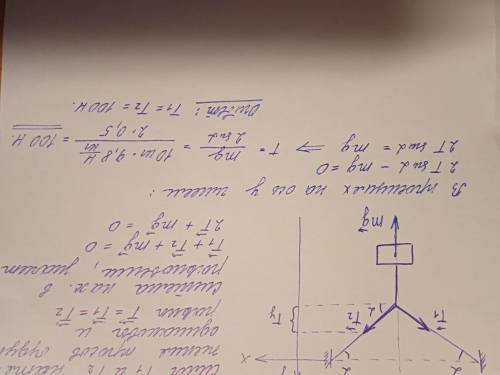 сил T₁ и T₂
одинаков и
равн T⃗ = T⃗₁ = T⃗₂
система нах. в
равновесии, значит
T⃗₁ + T⃗₂ + mg⃗ = 0
2T⃗ + mg⃗ = 0
В проекциях на ось y имеем:
2T sin α − mg = 0
2T sin α = mg ⇒ T = mg / 2 sin α = 10 кг · 9,8 Н/кг / 2 · 0,5 = 100 Н.
Ответ: T₁ = T₂ = 100 Н.
α
α
x
T⃗₁
T⃗₂
Ty
α
mg⃗